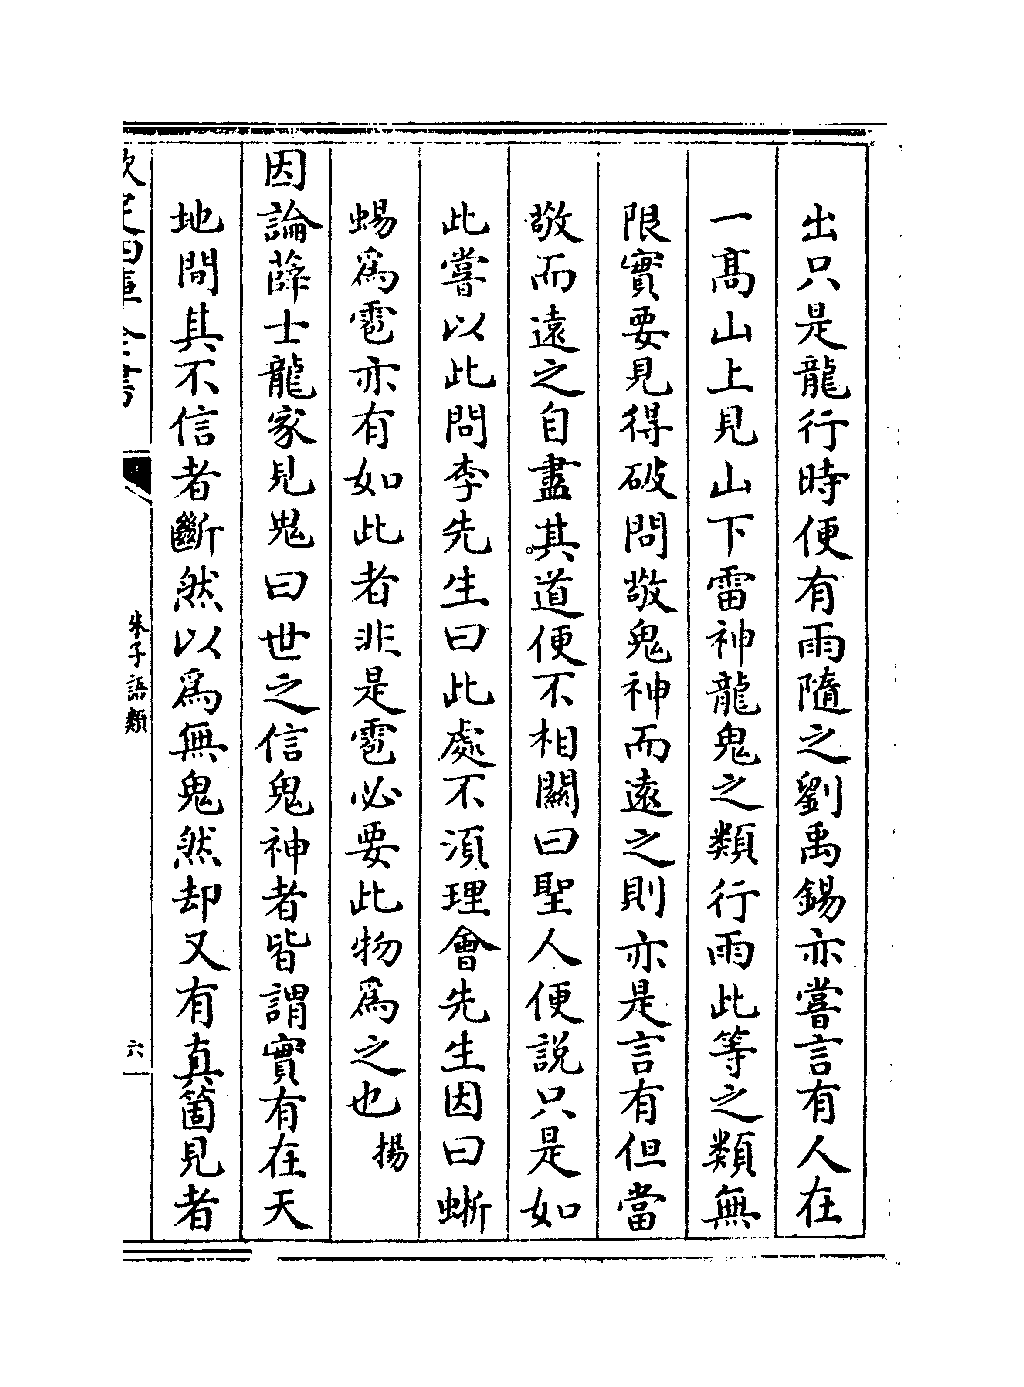 出只是龍行時便有雨隨之劉禹錫亦嘗言有人在
一髙山上見山下雷神龍鬼之類行雨此等之類無
限實要見得破問敬鬼神而逺之則亦是言有但當
敬而逺之自盡其道便不相闗曰聖人便説只是如
此嘗以此問李先生曰此處不湏理會先生因曰蜥
蜴為雹亦有如此者非是雹必要此物為之也揚
因論薛士龍家見鬼曰世之信鬼神者皆謂實有在天
地間其不信者斷然以為無鬼然却又有真箇見者
欽定四庫全書
朱子語類
六